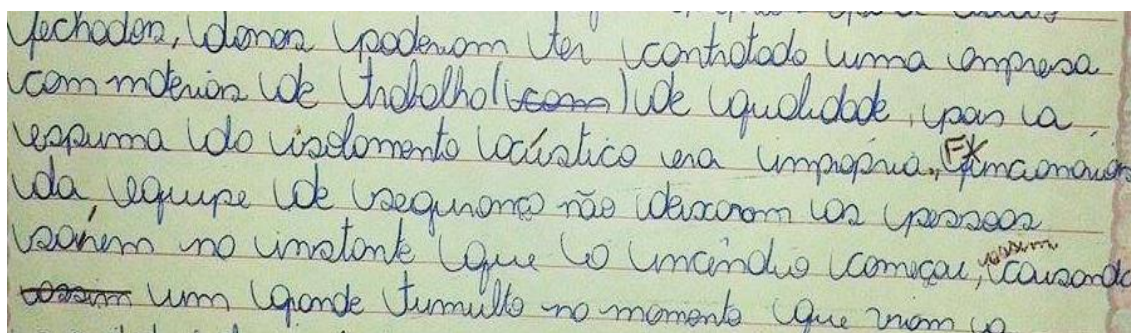 fechados, donos poderiam ter contratado uma empresa
com materiais de trabalho (com) de qualidade, pois a
espuma do isolamento acústico era imprópria, Funcionários
da equipe de segurança não deixaram as pessoas
sairem no instante que o incêndio começou, assim causando
assim um grande tumulto no momento que viram